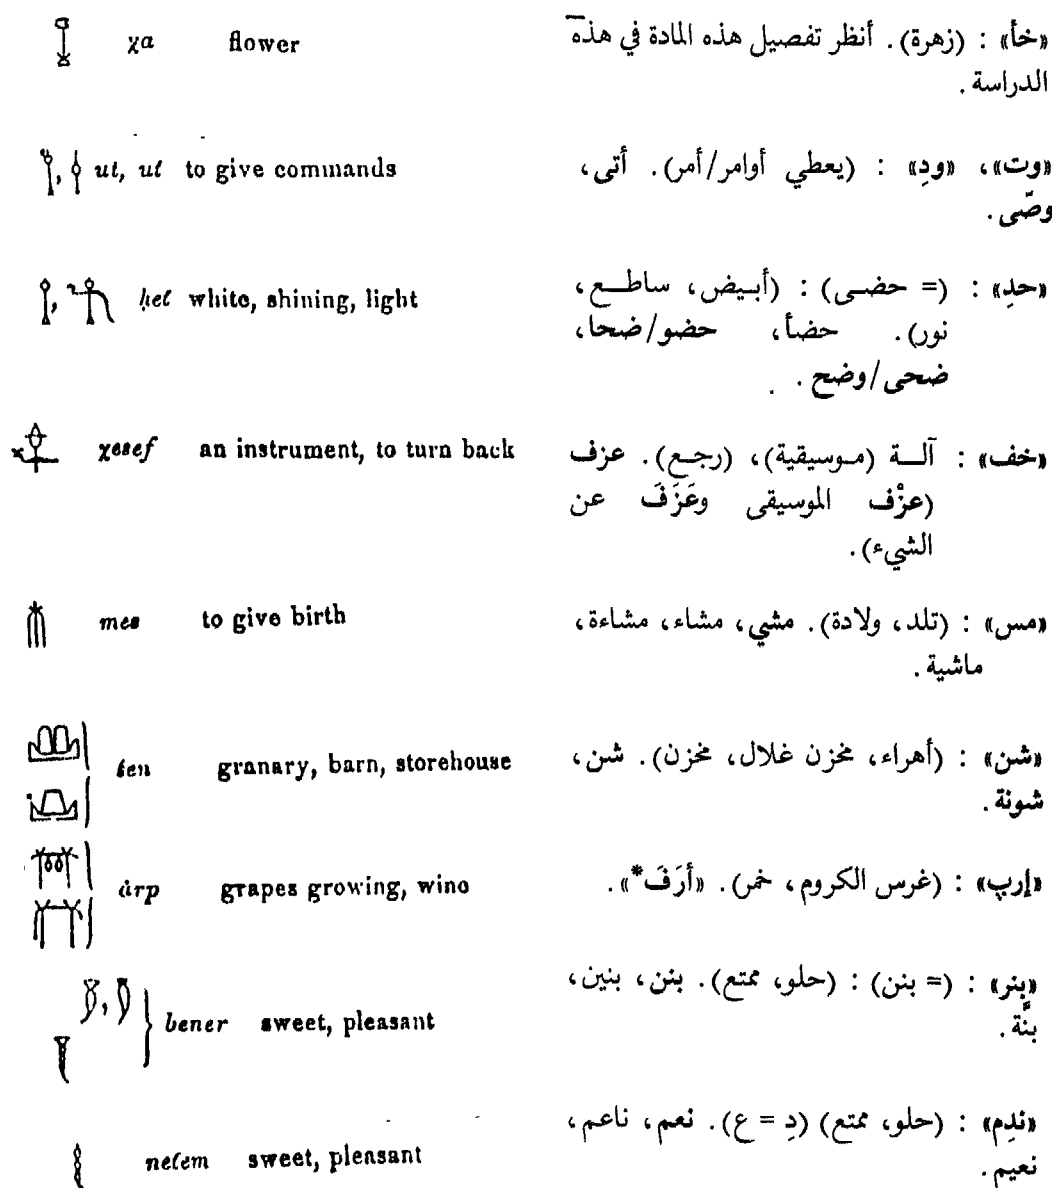 χa flower
«خأ» : (زهرة). أنظر تفصيل هذه المادة في هذه
الدراسة.
ut, uť to give commands
«وت»، «ودِ» : (يعطي أوامر/أمر). أتى،
وصّى.
ḥeť white, shining, light
«حدِ» : (= حضى) : (أبيض، ساطع،
نور). حضأ، حضو/ضحا،
ضحى/وضح.
χesef an instrument, to turn back
«خف» : آلة (موسيقية)، (رجع). عزف
(عزْف الموسيقى وعَزَفَ عن
الشيء).
mes to give birth
«مس» : (تلد، ولادة). مشي، مشاء، مشاءة،
ماشية.
śen granary, barn, storehouse
«شن» : (أهراء، مخزن غلال، مخزن). شن،
شونة.
årp grapes growing, wine
«إرپ» : (غرس الكروم، خمر). «أرَفَ*».
bener sweet, pleasant
«بنر» : (= بنن) : (حلو، ممتع). بنن، بنين،
بنَّة.
neťem sweet, pleasant
«ندِم» : (حلو، ممتع) (دِ = ع). نعم، ناعم،
نعيم.